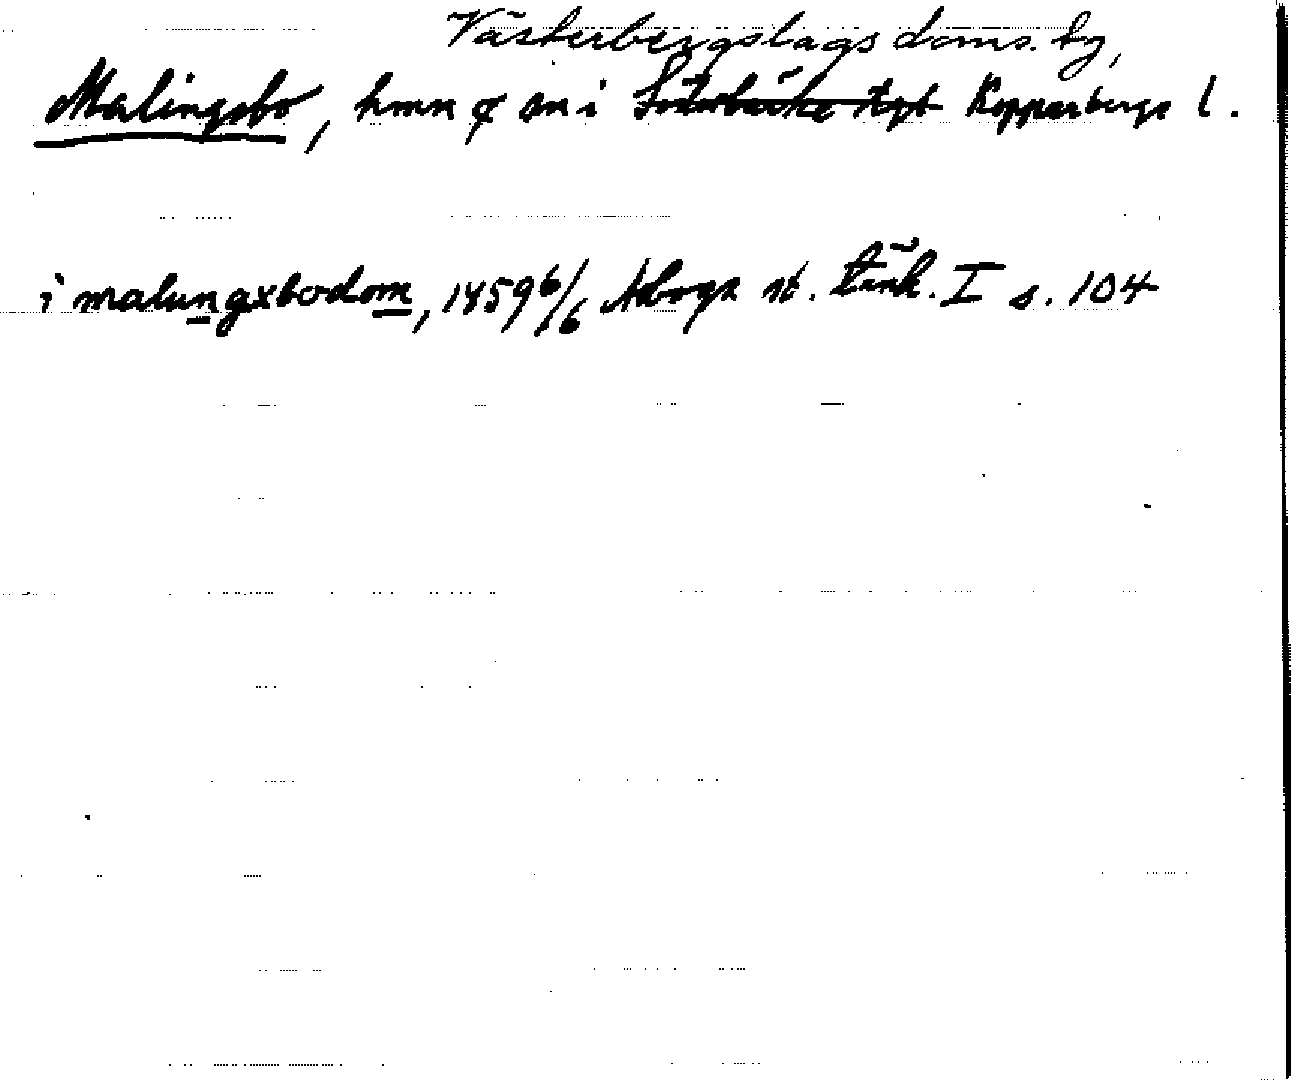 Västerbergslags doms. tg,
Malingsbo, hmn o sn i Söderbärke tgl Kopparbergs l.
i malungxbodom, 1459 6/6 Arboga st. tänk. I s. 104